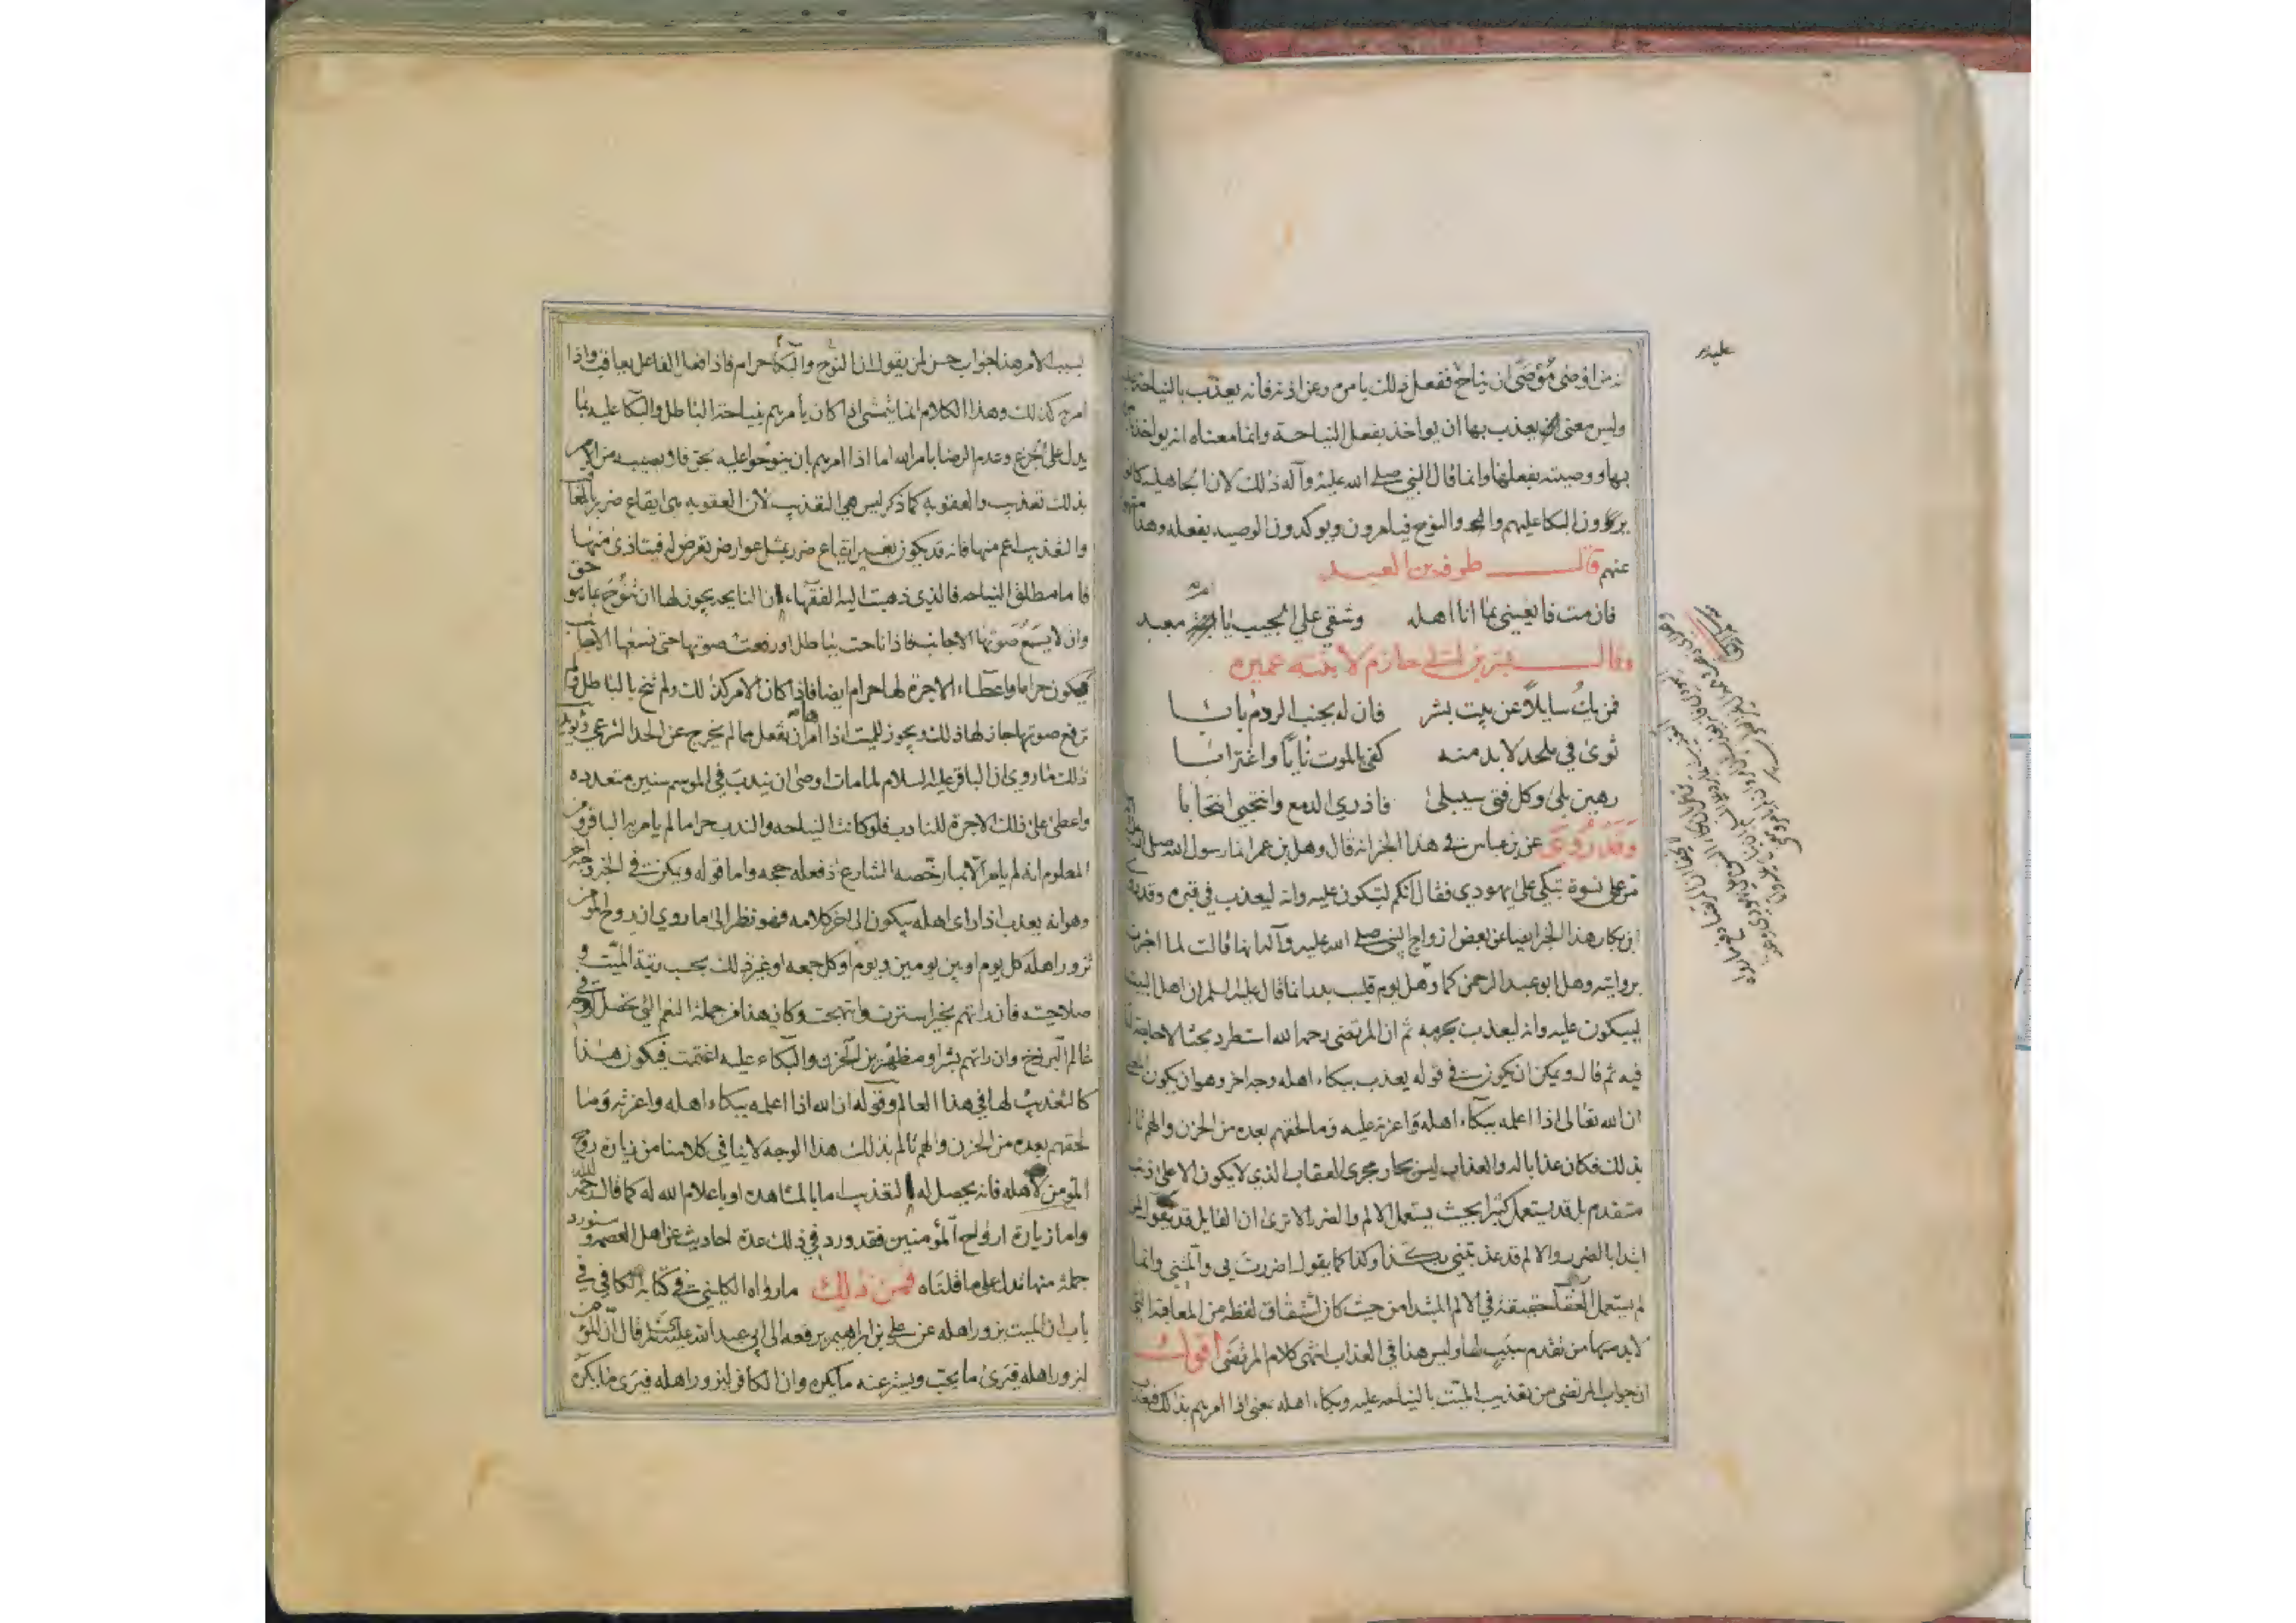 انه من اوصى مُوْصًى ان يناح ففعل ذلك بامره وعن اذنه فانه يعذب بالنياحة عليه
وليس معنى يعذب بها ان يواخذ بفعل النياحة وانما معناه انه يواخذ
بها ووصيته بفعلها وانما قال النبي صلى الله عليه وآله ذلك لان الجاهلية كانوا
يرون البكا عليهم والنوح فيامرون ويوكدون الوصيه بفعله وهذا مشهور
عنهم قال طرفه بن العبد
فان مت فانعيني بما انا اهله وشقي علي الجيب يا ابنة معبد
وقال بشر بن ابي حازم لابنته عميره
فمن يك سايلا عن بيت بشر فان له بجنب الردم بابا
ثوى في ملحد لا بد منه كفى بالموت نايا واغترابا
رهين بلى وكل فتى سيبلى فاذري الدمع وانتحبي انتحابا
وقد روى عن بن عباس في هذا الخبر انه قال وهل بن عمر انما رسول الله صلى الله
مر على نسوة تبكي على يهودي فقال انكم لتبكون عليه وانه ليعذب في قبره وقد
انكار هذا الخبر ايضا عن بعض ازواج النبي صلى الله عليه وآله انها قالت لما اخبرت
بروايته وهل ابو عبد الرحمن كما وهل يوم قليب بدر انما قال عليه السلم ان اهل الميت
ليبكون عليه وانه ليعذب بجرمه ثم ان المرتضى رحمه الله استطرد بحثا
فيه ثم قال ويمكن ان يكون في قوله يعذب ببكاء اهله وجه اخر وهو ان يكون المعنى
ان الله تعالى اذا اعلمه ببكاء اهله واعزته عليه وما لحقهم بعده من الحزن والهم تالم
بذلك فكان عذابا له والعذاب ليس بجار مجرى العقاب الذي لا يكون الا على ذنب
متقدم بل قد يستعمل كثيرا بحيث يستعمل الالم والضرر الا ترى ان القايل قد يقول لمن
ابتدا بالضرر والالم قد عذبتني بكذا وكذا كما يقول اضررت بي وآلمتني وانما
لم يستعمل العقاب حقيقة في الالم المبتدا من حيث كان اشتقاق لفظه من المعاقبة التي
لا بد منها من تقدم سبب لها وليس هذا في العذاب انتهى كلام المرتضى اقول
ان جواب المرتضى من تعذيب الميت بالنياحه عليه وبكاء اهله يعني اذا امرهم بذلك فعذب
بسبب الامر هذا جواب حسن لمن يقول ان النوح والبكاء حرام فاذا فعل الفاعل يعاقب واذا
امر به كذلك وهذا الكلام انما يتمشى اذا كان يأمرهم بنياحة الباطل والبكآ عليه بما
يدل على الجزع وعدم الرضا بامر الله اما اذا امرهم بان ينوحوا عليه بحق فلا يصيبه من الامر
بذلك تعذيب والعقوبه كما ذكر ليس هي التعذيب لان العقوبه هي ايقاع ضرر بالمعاقب
والتعذيب اعم منها فانه قد يكون بغير ايقاع ضرر بمثل عوارض تعرض له فيتاذى منها
فاما مطلق النياحه فالذي ذهبت اليه الفقهاء ان النايحه يجوز لها ان تنوح بما هو حق
وان لا يسمع صوتها الاجانب فاذا ناحت بباطل او رفعت صوتها حتى تسمعها الاجانب
فيكون حراما واعطاء الاجرة لها حرام ايضا فاذا كان الامر كذلك ولم تنح بالباطل ولم
ترفع صوتها جاز لها ذلك ويجوز للميت اذا امر ان يفعل مما لم يخرج عن الحد الشرعي ويويد
ذلك ما روي ان الباقر عليه السلام لما مات اوصى ان يندب في الموسم سنين متعدده
واعطى على ذلك الاجرة للنادب فلو كانت النياحه والندب حراما لم يامر به الباقر ومن
المعلوم انه لم يامر الا بما رخصه الشارع اذ فعله حجه واما قوله ويمكن في الخبر وجه اخر
وهو انه يعذب اذا راى اهله يبكون الى اخر كلامه فهو نظر الى ما روي ان روح المومن
تزور اهله كل يوم او بين يومين ويوم او كل جمعه او غير ذلك بحسب رتبة الميت و
صلاحيته فان راتهم بخير استرت وابتهجت وكان هذا من جملة النعم التي تحصل لهم في
عالم البرزخ وان راتهم بشر او مظهرين الحزن والبكاء عليه اغتمت فيكون هذا
كالتعذيب لها في هذا العالم وقوله ان الله اذا اعلمه ببكاء اهله واعزته وما
لحقهم بعده من الحزن والهم تالم بذلك هذا الوجه لا ينافي كلامنا من زيارة روح
المومن لاهله فانه يحصل له التعذيب اما بالمشاهده او باعلام الله له كما قال رحمه الله
واما زيارة ارواح المؤمنين فقد ورد في ذلك عدة احاديث عن اهل العصمه وسنورد
جملة منها تدل على ما قلناه فمن ذلك ما رواه الكليني في كتابه الكافي في
باب ان الميت يزور اهله عن علي بن ابراهيم يرفعه الى ابي عبد الله عليه السلام قال ان المؤمن
ليزور اهله فيرى ما يحب ويستر عنه ما يكره وان الكافر ليزور اهله فيرى ما يكره